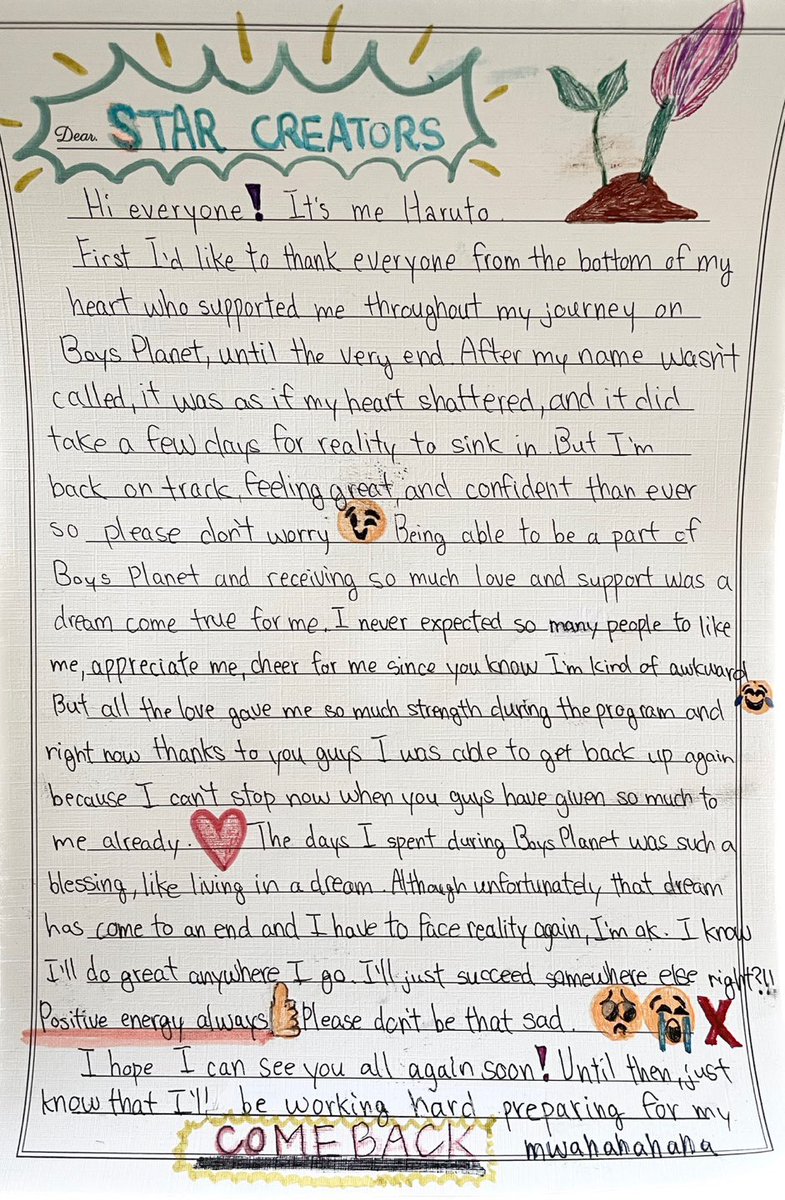 Dear. STAR CREATORS
Hi everyone! It's me Haruto.
First I'd like to thank everyone from the bottom of my
heart who supported me throughout my journey on
Boys Planet, until the very end. After my name wasn't
called, it was as if my heart shattered, and it did
take a few days for reality to sink in. But I'm
back on track, feeling great, and confident than ever
so please don't worry Being able to be a part of
Boys Planet and receiving so much love and support was a
dream come true for me. I never expected so many people to like
me, appreciate me, cheer for me since you know I'm kind of awkward
But all the love gave me so much strength during the program and
right now thanks to you guys I was able to get back up again
because I can't stop now when you guys have given so much to
me already. The days I spent during Boys Planet was such a
blessing, like living in a dream. Although unfortunately that dream
has come to an end and I have to face reality again, I'm ok. I know
I'll do great anywhere I go. I'll just succeed somewhere else right?!!
Positive energy always! Please don't be that sad.
I hope I can see you all again soon! Until then, just
know that I'll be working hard preparing for my
COMEBACK mwahahahaha